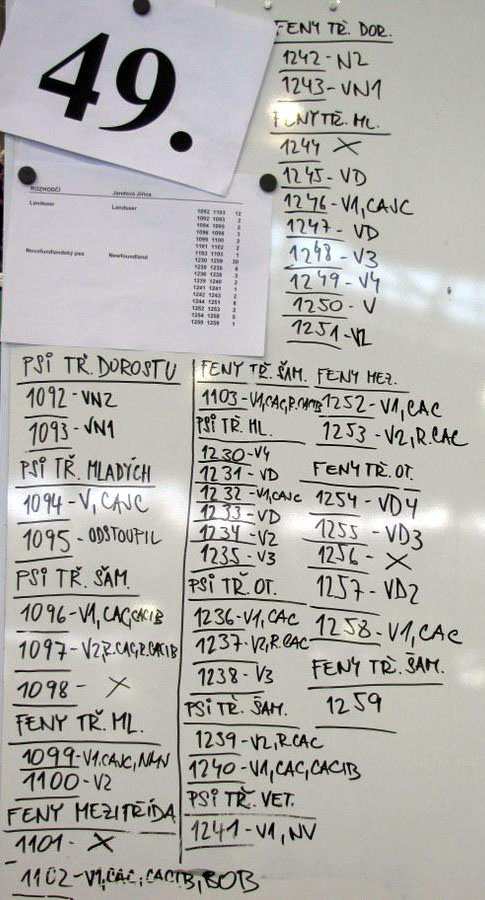 49.
ROZHODČÍ Jandová Jiřina
Landseer Landseer
1092 1103 12
1092 1093 2
1094 1095 2
1096 1098 3
1099 1100 2
1101 1102 2
1103 1103 1
Novofundlandský pes Newfoundland
1230 1259 30
1230 1235 6
1236 1238 3
1239 1240 2
1241 1241 1
1242 1243 2
1244 1251 8
1252 1253 2
1254 1258 5
1259 1259 1
PSI TŘ. DOROSTU
1092 - VN2
1093 - VN1
PSI TŘ. MLADÝCH
1094 - V1, CAJC
1095 - ODSTOUPIL
PSI TŘ. ŠAM.
1096 - V1, CAC, CACIB
1097 - V2, R.CAC, R.CACIB
1098 - X
FENY TŘ. ML.
1099 - V1, CAJC, NMN
1100 - V2
FENY MEZITŘÍDA
1101 - X
1102 - V1, CAC, CACIB, BOB
FENY TŘ. ŠAM.
1103 - V1, CAC, R.CACIB
PSI TŘ. ML.
1230 - V4
1231 - VD
1232 - V1, CAJC
1233 - VD
1234 - V2
1235 - V3
PSI TŘ. OT.
1236 - V1, CAC
1237 - V2, R.CAC
1238 - V3
PSI TŘ. ŠAM.
1239 - V2, R.CAC
1240 - V1, CAC, CACIB
PSI TŘ. VET.
1241 - V1, NV
FENY TŘ. DOR.
1242 - N2
1243 - VN1
FENY TŘ. ML.
1244 X
1245 - VD
1246 - V1, CAJC
1247 - VD
1248 - V3
1249 - V4
1250 - V
1251 - V2
FENY MEZ.
1252 - V1, CAC
1253 - V2, R.CAC
FENY TŘ. OT.
1254 - VD4
1255 - VD3
1256 - X
1257 - VD2
1258 - V1, CAC
FENY TŘ. ŠAM.
1259